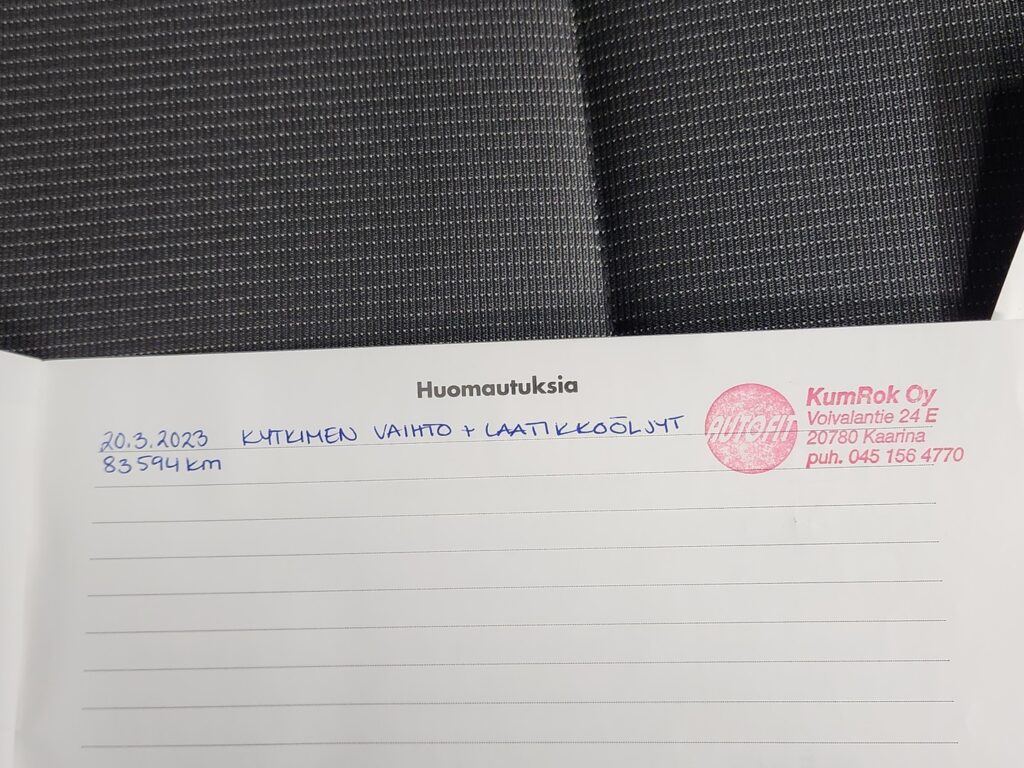 Huomautuksia
20.3.2023 KYTKIMEN VAIHTO + LAATIKKOÖLJYT
83594 km
AUTOFIT
KumRok Oy
Voivalantie 24 E
20780 Kaarina
puh. 045 156 4770